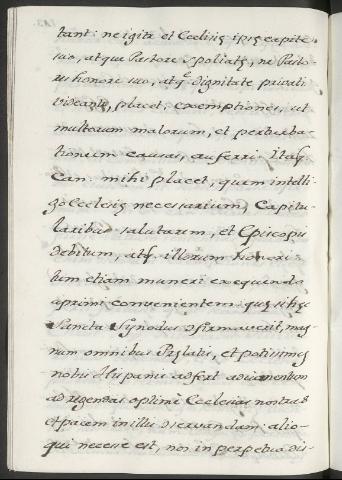 tant: ne igitr et Ecclesiis ipsis capite
suo, atque Pastore spoliatis, ne Pasto-
res honore suo, atq̃ dignitate privati
videantr, placet, exemptiones, ut
multorum malorum, et perberba-
tionum causas, auferri. Itaq̃
Can. mihi placet, quam intelli-
go Ecclesiis necessarium, Capitu-
laribus salutarem, et Episcopis
debitum, atq̃ illorum honori
tum etiam muneri exequendo
aprimi convenientem
Sancta Synodus confirmaverit, mag-
num omnibus Prælatis, et potissimos
nobis Hispanis adfert adiumentum
ad regendas optime Ecclesias nostras
et pacem in illis conservandam: alio-
qui necesse est, nos in perpetua dis-